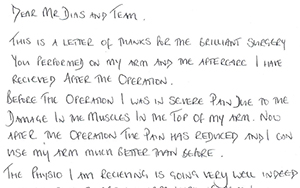 Dear Mr Dias and Team.
This is a letter of thanks for the brilliant surgery
You performed on my arm and the aftercare I have
recieved after the operation.
Before the operation I was in severe pain due to the
damage in the muscles in the top of my arm. Now
after the operation the pain has reduced and I can
use my arm much better than before.
The physio I am recieving is going very well indeed